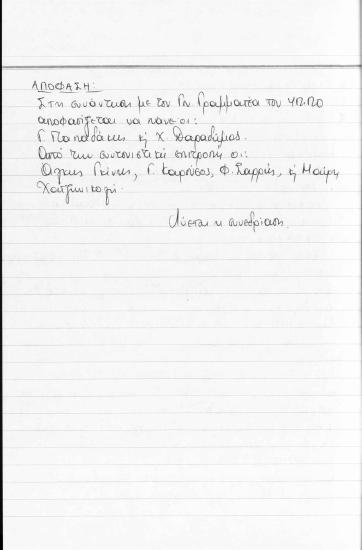 ΑΠΟΦΑΣΗ:
Στη συνάντηση με τον Γεν. Γραμματέα του ΥΠ.ΠΟ
αποφασίζεται να πάνε οι:
Γ. Παπαδάκης ή Χ.
Από την συντονιστική επιτροπή οι:
Γκίνης, Γ. Καρνέσος, Φ. Σαρρής, ή Μαίρη
Χατζηνικολή.
Λύεται η συνεδρίαση.